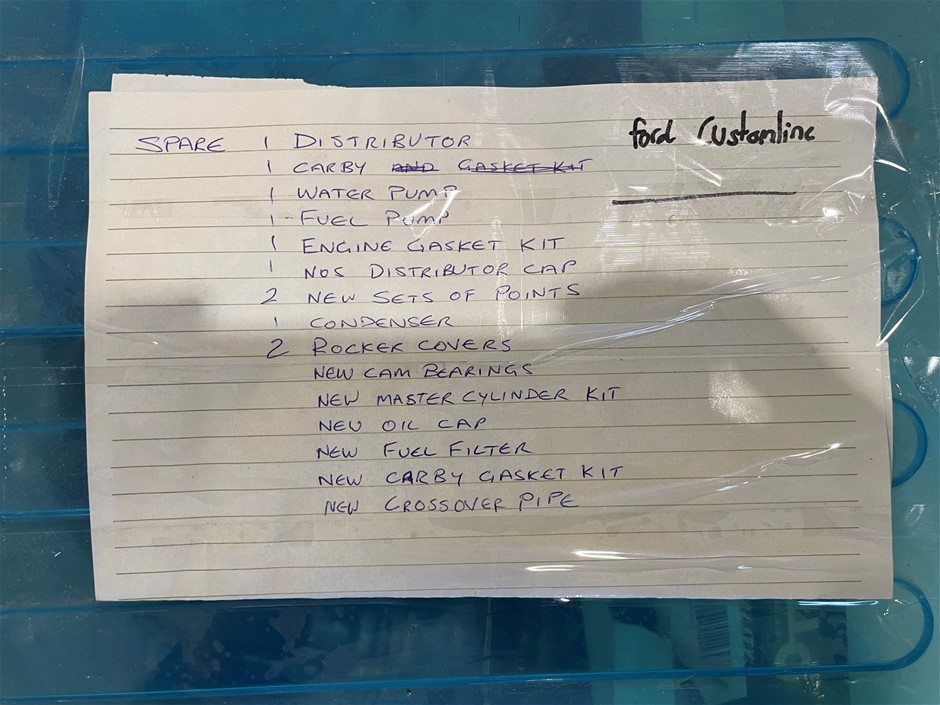 ford Customline
SPARE 1 DISTRIBUTOR
1 CARBY AND GASKET KIT
1 WATER PUMP
1 - FUEL PUMP
1 ENGINE GASKET KIT
1 NOS DISTRIBUTOR CAP
2 NEW SETS OF POINTS
1 CONDENSER
2 ROCKER COVERS
NEW CAM BEARINGS
NEW MASTER CYLINDER KIT
NEW OIL CAP
NEW FUEL FILTER
NEW CARBY GASKET KIT
NEW CROSSOVER PIPE